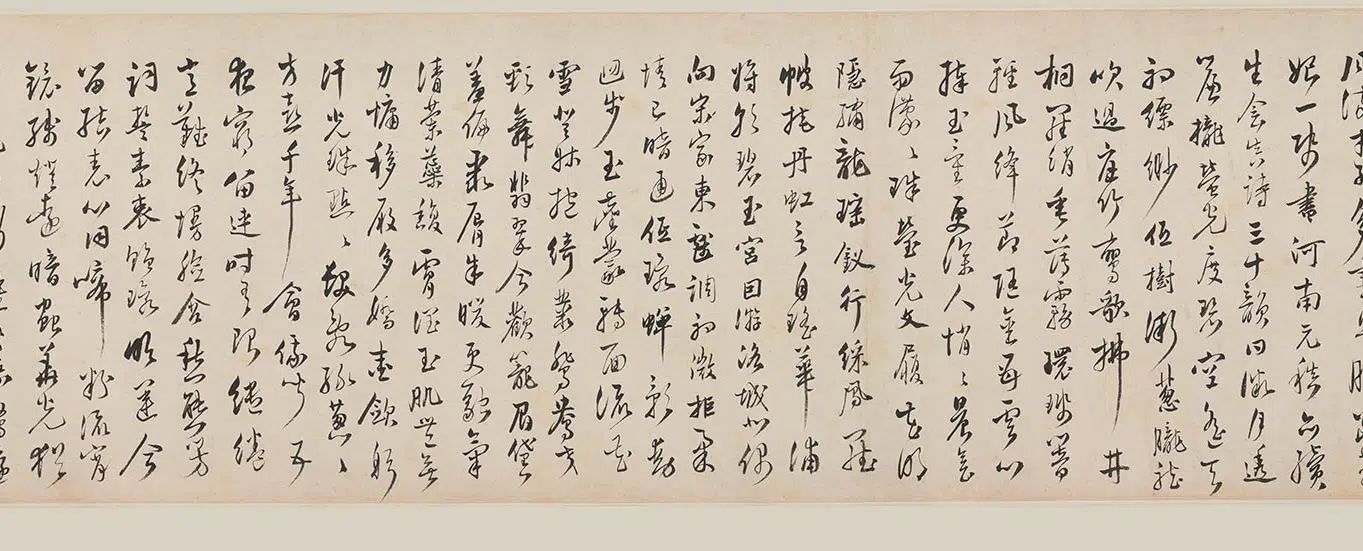 娘一紙書河南元稹亦續
生會真詩三十韻曰微月透
簾櫳螢光度碧空遙天
初縹緲低樹漸蔥朧龍
吹過庭竹鸞歌拂井
桐羅綃垂薄霧環珮響
輕風絳節隨金母雲心
捧玉童更深人悄悄晨會
雨濛濛珠瑩光文履花明
隱繡龍瑤釵行綵鳳羅
帔掩丹虹言自瑤華浦
將朝碧玉宮因游洛城北偶
向宋家東戲調初微拒柔
情已暗通低鬟蟬影動
迴步玉塵蒙轉面流花
雪登牀抱綺叢鴛鴦交
頸舞翡翠合歡籠眉黛
羞偏聚脣朱暖更融氣
清蘭蕊馥膚潤玉肌豐無
力慵移腕多嬌愛斂躬
汗光珠點點髮亂綠蔥蔥
方喜千年會俄聞五
夜窮留連時有限繾綣
意難終慢臉含愁態芳
詞誓素衷贈環明運合
留結表心同啼粉流宵
鏡殘燈遠暗蟲華光猶